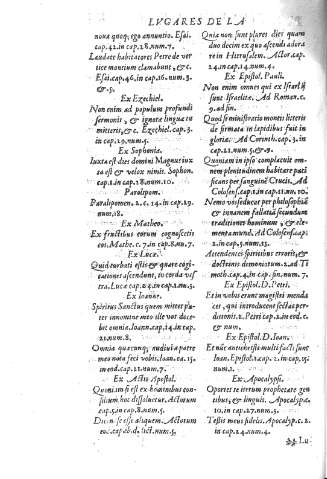 LVGARES DE LA
noua quoq; ego annuntio. Esai.
cap. 42. in cap. 28. num. 7.
Laudate habitatores Petre de ver
tice montium clamabunt, & c.
Esai. cap. 46. in cap. 16. num. 3
& 9.
Ex Ezechiel.
Non enim ad populum profundi
sermonis, & ignore linguæ tu
mitteris, & c. Ezechiel. cap. 3.
in cap. 29. num. 4.
Ex Sophonia.
Iuxta est dies domini Magnus iux
ta est & velox nimis. Sophon.
cap. 1. in cap. 18. num. 10.
Paralipom.
Paralipomen. 2. c. 14. in cap. 29.
num. 18.
Ex Matheo.
Ex fructibus eorum cognoscetis
eos. Mathe. c. 7. in cap. 8. nu. 7.
Ex Luca.
Quid turbati estis & quare cogi-
tationes ascendunt, in corda ve-
stra. Luca cap. 24. in cap. 1. nu. 3.
Ex Ioanne.
Spiritus Sanctus quem mittet pa-
ter innomine meo ille vos doce-
bit omnia. Ioann. cap. 14. in cap.
21. num. 8.
Omnia quæcunq; audiui a patre
meo nota feci vobis. Ioan. ca. 15.
in end. cap. 21. num. 7.
Ex Actis Apostol.
Quoniam si est ex hominibus con-
silium hoc dissoluetur. Actorum
cap. 5. in cap. 8. num. 5.
se aliquem. Actorum
eod. cap. 6. d. ict. num. 5.
Quia non sunt plures dies quam
duodecim ex quo ascendi adora
re in Hierusalem. Actor. cap.
24. in cap. 14. num. 4.
Ex Epistol. Pauli.
Non enim omnes qui ex Israel ij
sunt Israelitæ. Ad Roman. c. 9.
ad fin.
Quod si ministratio mortis literis
de firmata in lapidibus fuit in
gloria. Ad Corinth. cap. 3. in
cap. 21. num. 5. & 9.
Quoniam in ipso complacuit om-
nem plenitudinem habitare paci
ficans per sanguinẽ Crucis. Ad
Colosens. cap. 1. in cap. 11. nu. 10.
Nemo vos seducat per philosophiã
& innanem fallatiã secundum
traditiones hominum, & ele-
menta mundi. Ad Colosens. cap.
2. in cap. 5. num. 13.
Attendentes spiritibus erroris, &
doctrinis demoniorum. 1. ad Ti
moth. cap. 4. in cap. fin. num. 7.
Ex Epistol. D. Petri.
Et in vobis erunt magistri menda
ces, qui introducent sectas per
ditionis. 2. Petri cap. 2. in eod. c.
& num.
Ex Epistol. D. Ioan.
Et nũc antechristi multi facti sunt
Ioan. Epistol. 1. cap. 2. in cap. 15.
num. 1.
Ex Apocalypsi.
Oportet te iterum prophetare gen
tibus, & linguis. Apocalyp. c.
10. in cap. 27. num. 3.
Testis meus fidelis. Apocalyp. c. 2.
in cap. 24. num. 4.
Lu